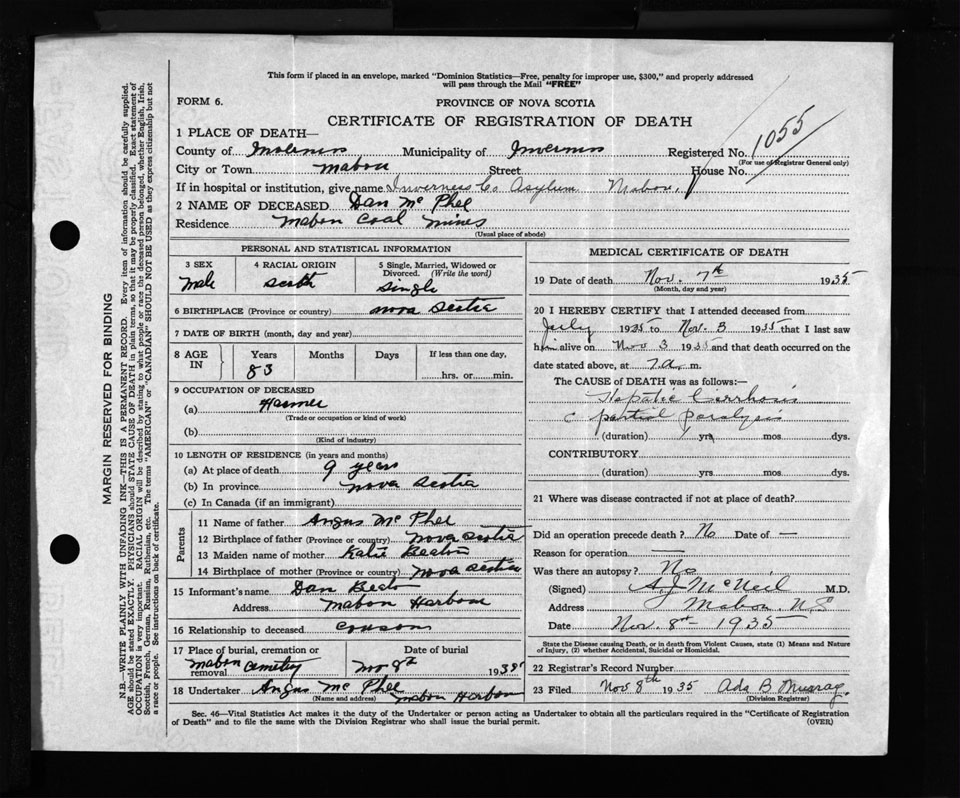 This form if placed in an envelope, marked "Dominion Statistics—Free, penalty for improper use, $300," and properly addressed
will pass through the Mail "FREE"
FORM 6.
PROVINCE OF NOVA SCOTIA
CERTIFICATE OF REGISTRATION OF DEATH
1 PLACE OF DEATH—
County of Inverness Municipality of Inverness Registered No. 1055
(For use of Registrar General only)
City or Town Mabou Street House No.
If in hospital or institution, give name Inverness Co Asylum Mabou,
2 NAME OF DECEASED Dan Mc Phee
Residence Mabou Coal Mines
(Usual place of abode)
PERSONAL AND STATISTICAL INFORMATION
3 SEX
Male
4 RACIAL ORIGIN
Scotch
5 Single, Married, Widowed or
Divorced. (Write the word)
Single
6 BIRTHPLACE (Province or country) Nova Scotia
7 DATE OF BIRTH (month, day and year)
8 AGE IN
Years
83
Months
Days
If less than one day,
hrs. or min.
9 OCCUPATION OF DECEASED
(a) Farmer
(Trade or occupation or kind of work)
(b)
(Kind of industry)
10 LENGTH OF RESIDENCE (in years and months)
(a) At place of death 9 years
(b) In province Nova Scotia
(c) In Canada (if an immigrant)
Parents
11 Name of father Angus Mc Phee
12 Birthplace of father (Province or country) Nova Scotia
13 Maiden name of mother Katie Beaton
14 Birthplace of mother (Province or country) Nova Scotia
15 Informant's name Dan
Address Mabou Harbour
16 Relationship to deceased
17 Place of burial, cremation or
removal Mabou Cemetery
Date of burial
Nov 8th 1935
18 Undertaker Angus Mc Phee Mabou Harbour
(Name and address)
MEDICAL CERTIFICATE OF DEATH
19 Date of death Nov. 7th 1935
(Month, day and year)
20 I HEREBY CERTIFY that I attended deceased from
July 1935 to Nov. 3 1935 that I last saw
him alive on Nov 3 1935 and that death occurred on the
date stated above, at 7 a. m.
The CAUSE of DEATH was as follows:—
Hepatic Cirrhosis
c partial paralysis
(duration) yrs mos. dys.
CONTRIBUTORY
(duration) yrs. mos. dys.
21 Where was disease contracted if not at place of death?
Did an operation precede death? No Date of —
Reason for operation —
Was there an autopsy? No
(Signed) A J McNeil M.D.
Address Mabou. N.S
Date Nov. 8th 1935
State the Disease causing Death, or in death from Violent Causes, state (1) Means and Nature
of Injury, (2) whether Accidental, Suicidal or Homicidal.
22 Registrar's Record Number
23 Filed Nov 8th 1935 Ada B Murray.
(Division Registrar)
Sec. 46—Vital Statistics Act makes it the duty of the Undertaker or person acting as Undertaker to obtain all the particulars required in the "Certificate of Registration
of Death" and to file the same with the Division Registrar who shall issue the burial permit.
(OVER)
MARGIN RESERVED FOR BINDING
N.B.—WRITE PLAINLY WITH UNFADING INK—THIS IS A PERMANENT RECORD. Every item of information should be carefully supplied.
AGE should be stated EXACTLY. PHYSICIANS should STATE CAUSE OF DEATH in plain terms, so that it may be properly classified. Exact statement of
OCCUPATION is very important. RACIAL ORIGIN will be described by stating to what people or race the deceased person belonged, whether English, Irish,
Scottish, French, German, Russian, Ruthenian, etc. The terms "AMERICAN" or "CANADIAN" SHOULD NOT BE USED as they express citizenship but not
a race or people. See instructions on back of certificate.